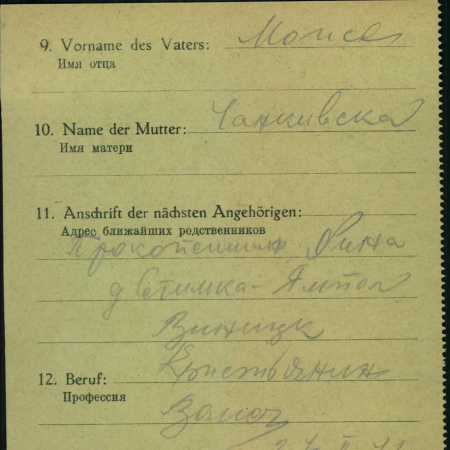 9. Vorname des Vaters: Моисе
Имя отца
10. Name der Mutter: Чанкивска
Имя матери
11. Anschrift der nächsten Angehörigen:
Адрес ближайших родственников
д Ямпол
Виницк
12. Beruf: Крестьянин
Профессия